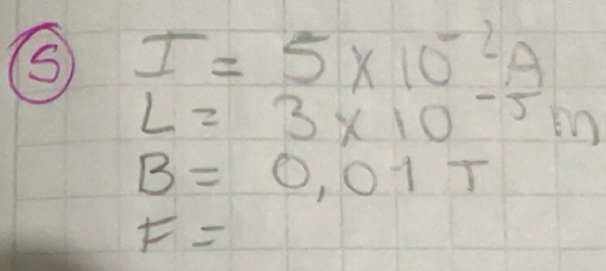 5 I = 5 × 10⁻² A
L = 3 × 10⁻⁵ m
B = 0,01 T
F =